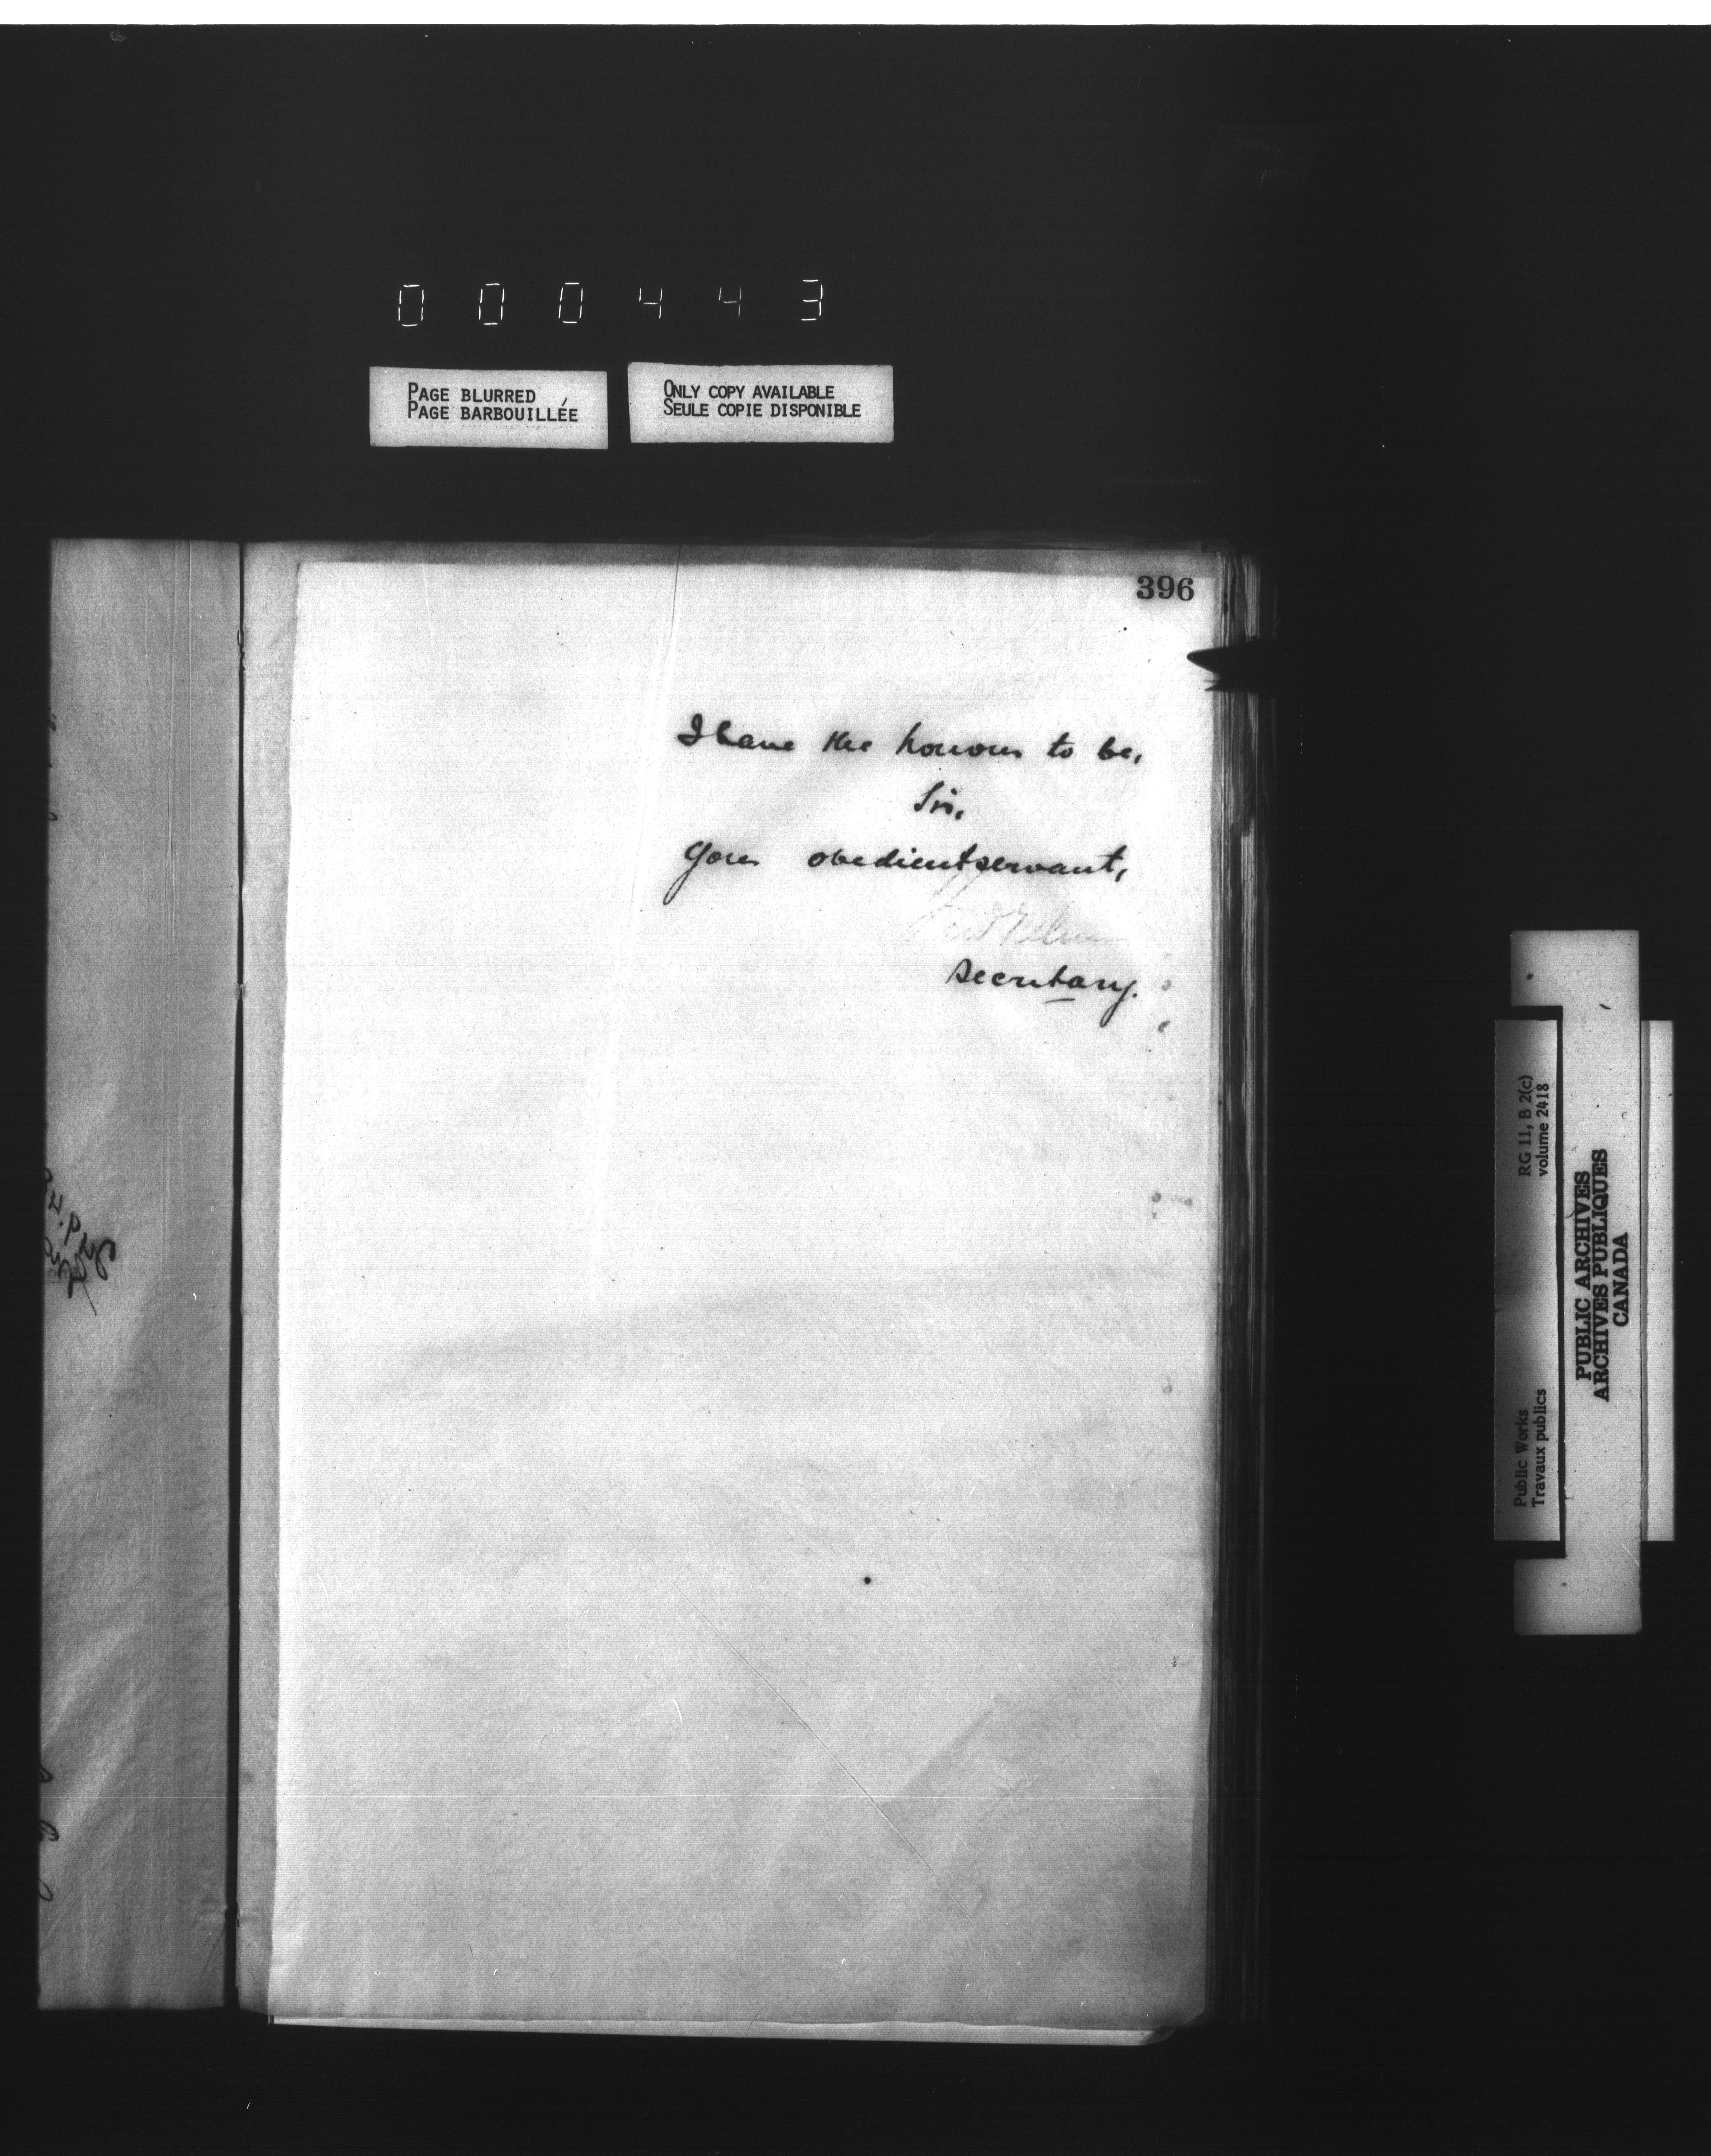 000443
PAGE BLURRED
PAGE BARBOUILLÉE
ONLY COPY AVAILABLE
SEULE COPIE DISPONIBLE
396
I have the honour to be,
Sir,
Your obedient servant,
Secretary.
RG 11, B 2(c)
volume 2418
Public Works
Travaux publics
PUBLIC ARCHIVES
ARCHIVES PUBLIQUES
CANADA